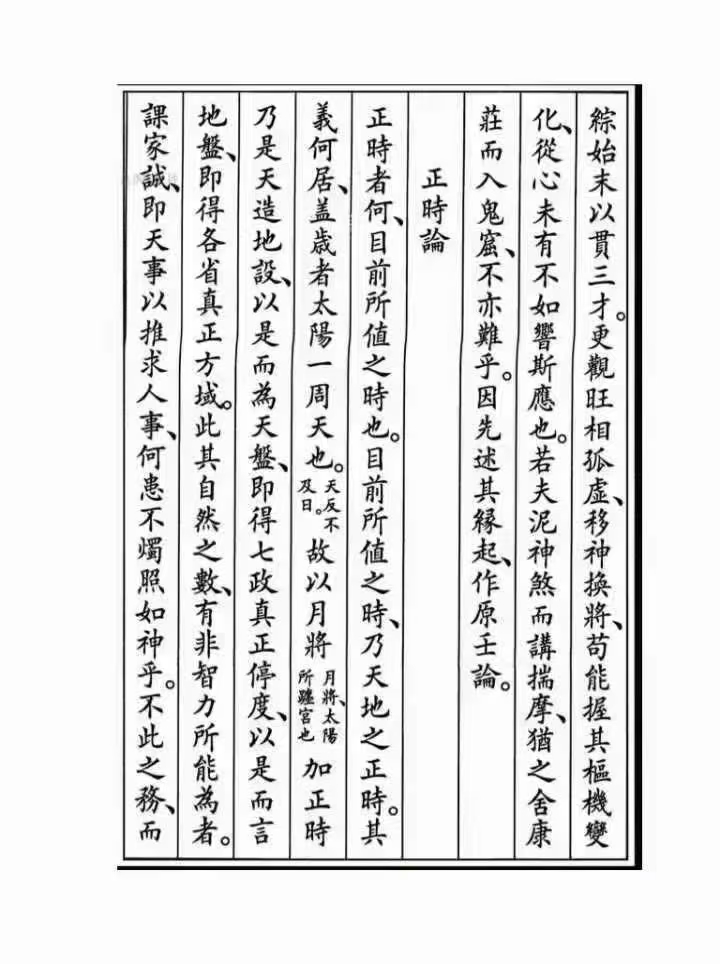 綜始末以貫三才。更觀旺相孤虛、移神換將、苟能握其樞機變
化、從心未有不如響斯應也。若夫泥神煞而講揣摩、猶之舍康
莊而入鬼窟、不亦難乎。因先述其緣起、作原壬論。
正時論
正時者何、目前所值之時也。目前所值之時、乃天地之正時。其
義何居、盖歲者太陽一周天也。天反不及日。故以月將月將、太陽所躔宮也加正時
乃是天造地設、以是而為天盤、即得七政真正停度、以是而言
地盤、即得各省真正方域。此其自然之數、有非智力所能為者。
課家誠、即天事以推求人事、何患不燭照如神乎。不此之務、而